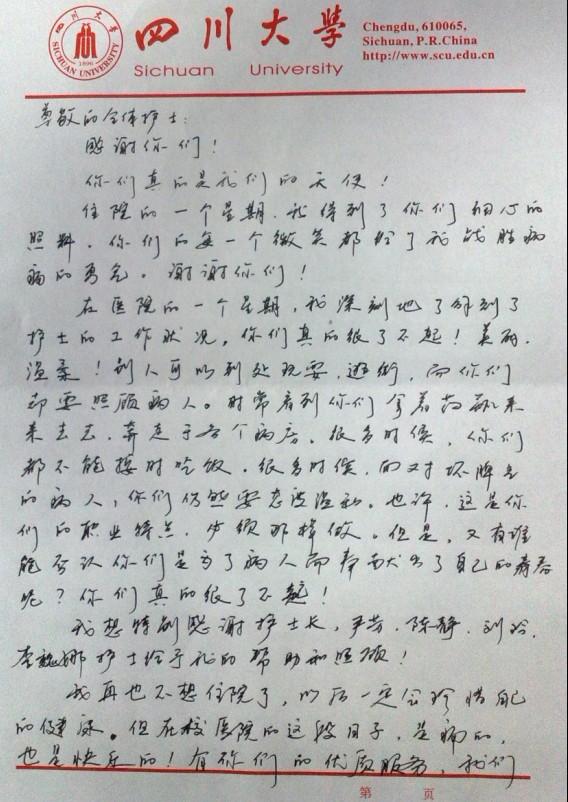 四川大学
SICHUAN UNIVERSITY
1896
四川大學
Sichuan University
Chengdu, 610065,
Sichuan, P.R.China
http://www.scu.edu.cn
尊敬的全体护士：
感谢你们！
你们真的是我们的天使！
住院的一个星期，我得到了你们细心的
照料。你们的每一个微笑都给了我战胜病
病的勇气。谢谢你们！
在医院的一个星期，我深刻地了解到了
护士的工作状况，你们真的很了不起！美丽、
温柔！别人可以到处玩耍、逛街，而你们
却要照顾病人。时常看到你们拿着药瓶来
来去去，奔走于各个病房。很多时候，你们
都不能按时吃饭。很多时候，面对坏脾气
的病人，你们仍然要态度温和。也许，这是你
们的职业特点，必须那样做。但是，又有谁
能否认你们是为了病人而奉献出了自己的青春
呢？你们真的很了不起！
我想特别感谢护士长，尹芳、陈静、刘玲、
李魏娜护士给予我的帮助和照顾！
我再也不想住院了，以后一定会珍惜自己
的健康。但在校医院的这段日子，是痛的，
也是快乐的！有你们的优质服务，我们
第 页